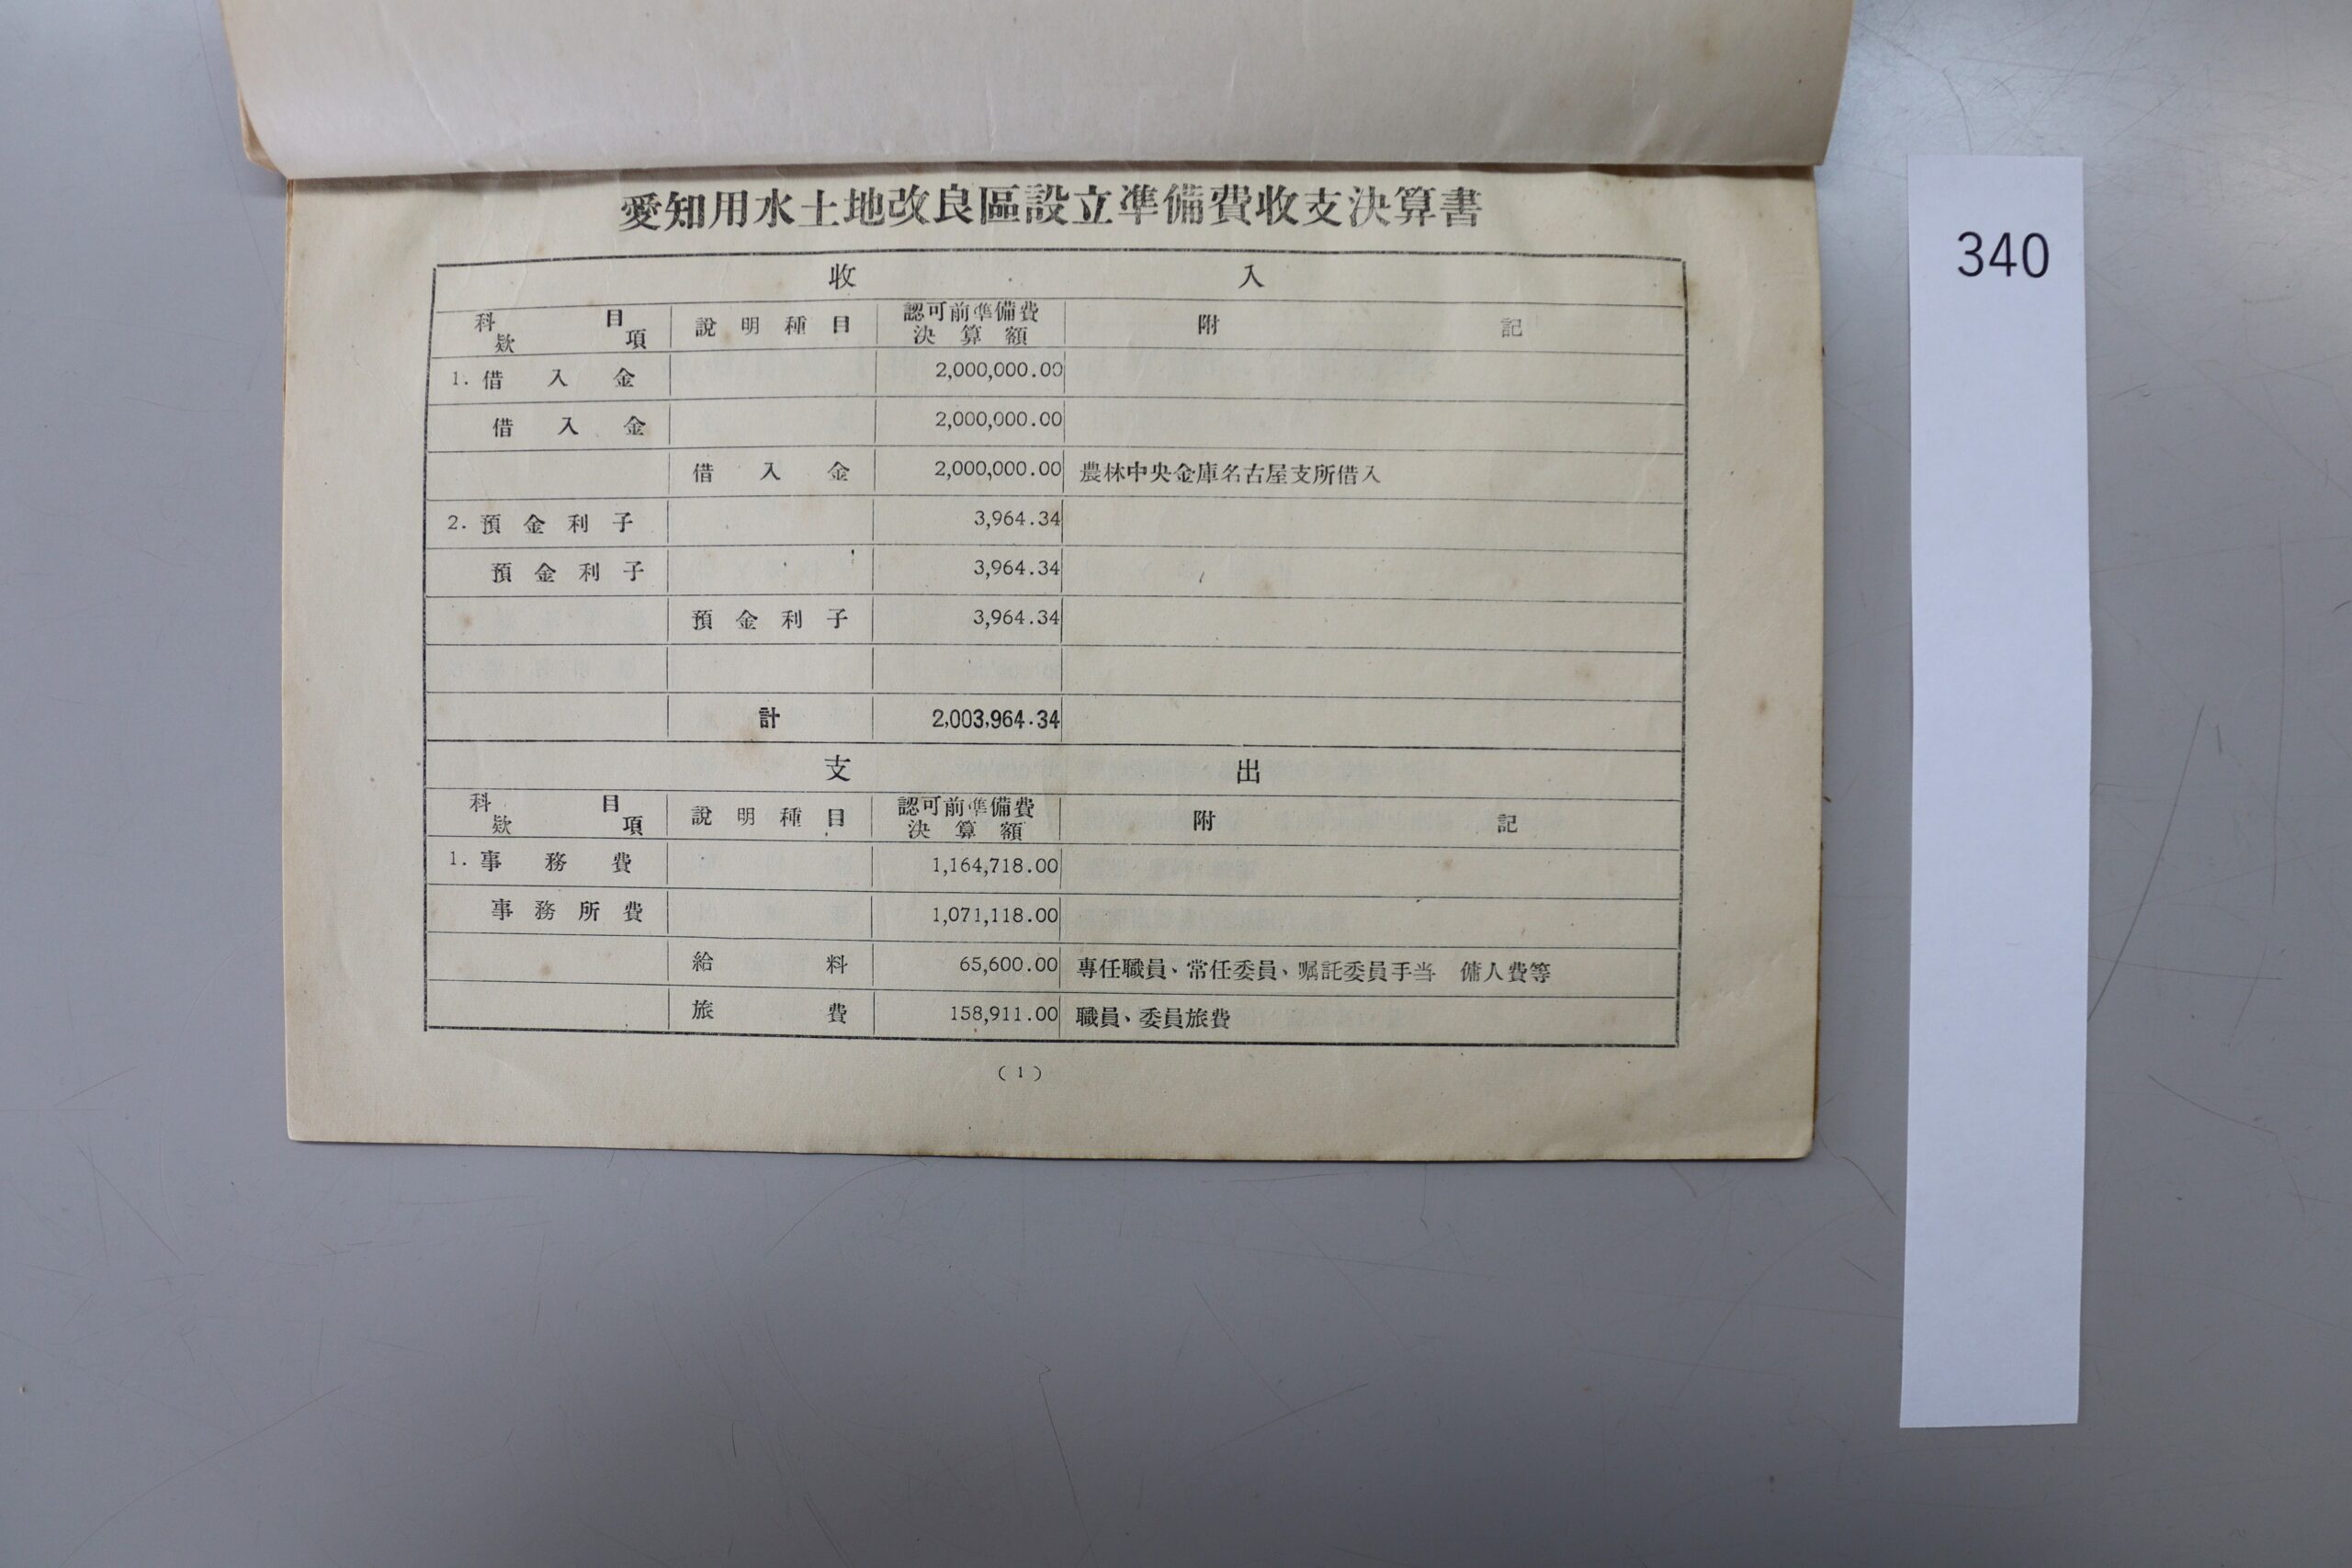 愛知用水土地改良區設立準備費收支決算書
收 入
科 目 款 項 說明種目 認可前準備費 決算額 附 記
1. 借入金 2,000,000.00
借入金 2,000,000.00
借入金 2,000,000.00 農林中央金庫名古屋支所借入
2. 預金利子 3,964.34
預金利子 3,964.34
預金利子 3,964.34
計 2,003,964.34
支 出
科 目 款 項 說明種目 認可前準備費 決算額 附 記
1. 事務費 1,164,718.00
事務所費 1,071,118.00
給料 65,600.00 專任職員、常任委員、嘱託委員手当 傭人費等
旅費 158,911.00 職員、委員旅費
(1)
340